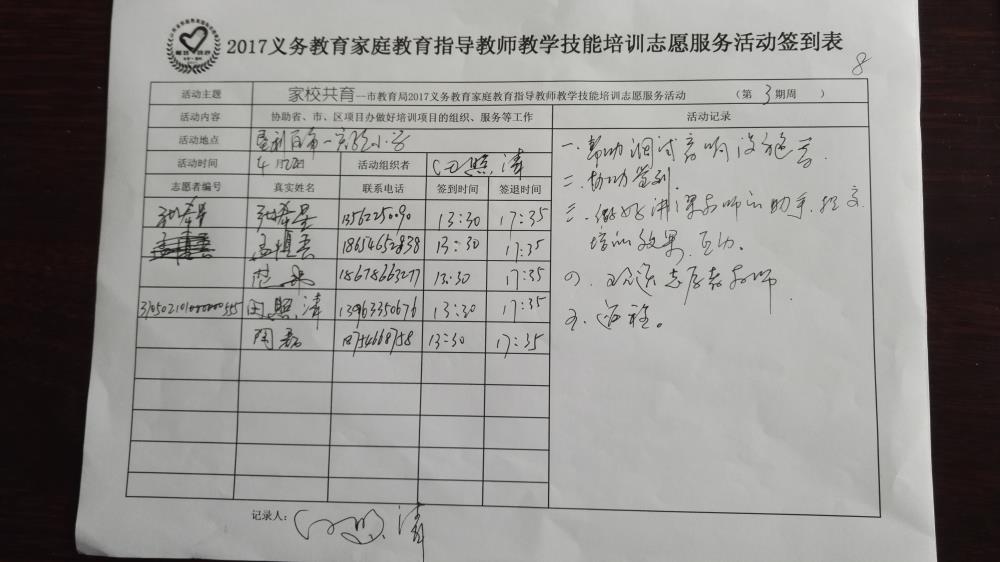 2017义务教育家庭教育指导教师教学技能培训志愿服务活动签到表
8
活动主题 家校共育—市教育局2017义务教育家庭教育指导教师教学技能培训志愿服务活动 （第 3 期周 ）
活动内容 协助省、市、区项目办做好培训项目的组织、服务等工作 活动记录
活动地点 垦利区第一实验小学
活动时间 4月 日 活动组织者 闫照涛
志愿者编号 真实姓名 联系电话 签到时间 签退时间
张希星 张希星 13:30 17:35
孟慎喜 孟慎喜 18654652838 13:30 17:35
范 18678663277 13:30 17:35
闫照涛 13963350676 13:30 17:35
陶磊 13:30 17:35
一、帮助调试音响设施等
二、协助签到.
三、做好讲课教师的助手,提交
培训效果,互动。
四、欢送志愿者教师
五、返程。
记录人： 闫照涛